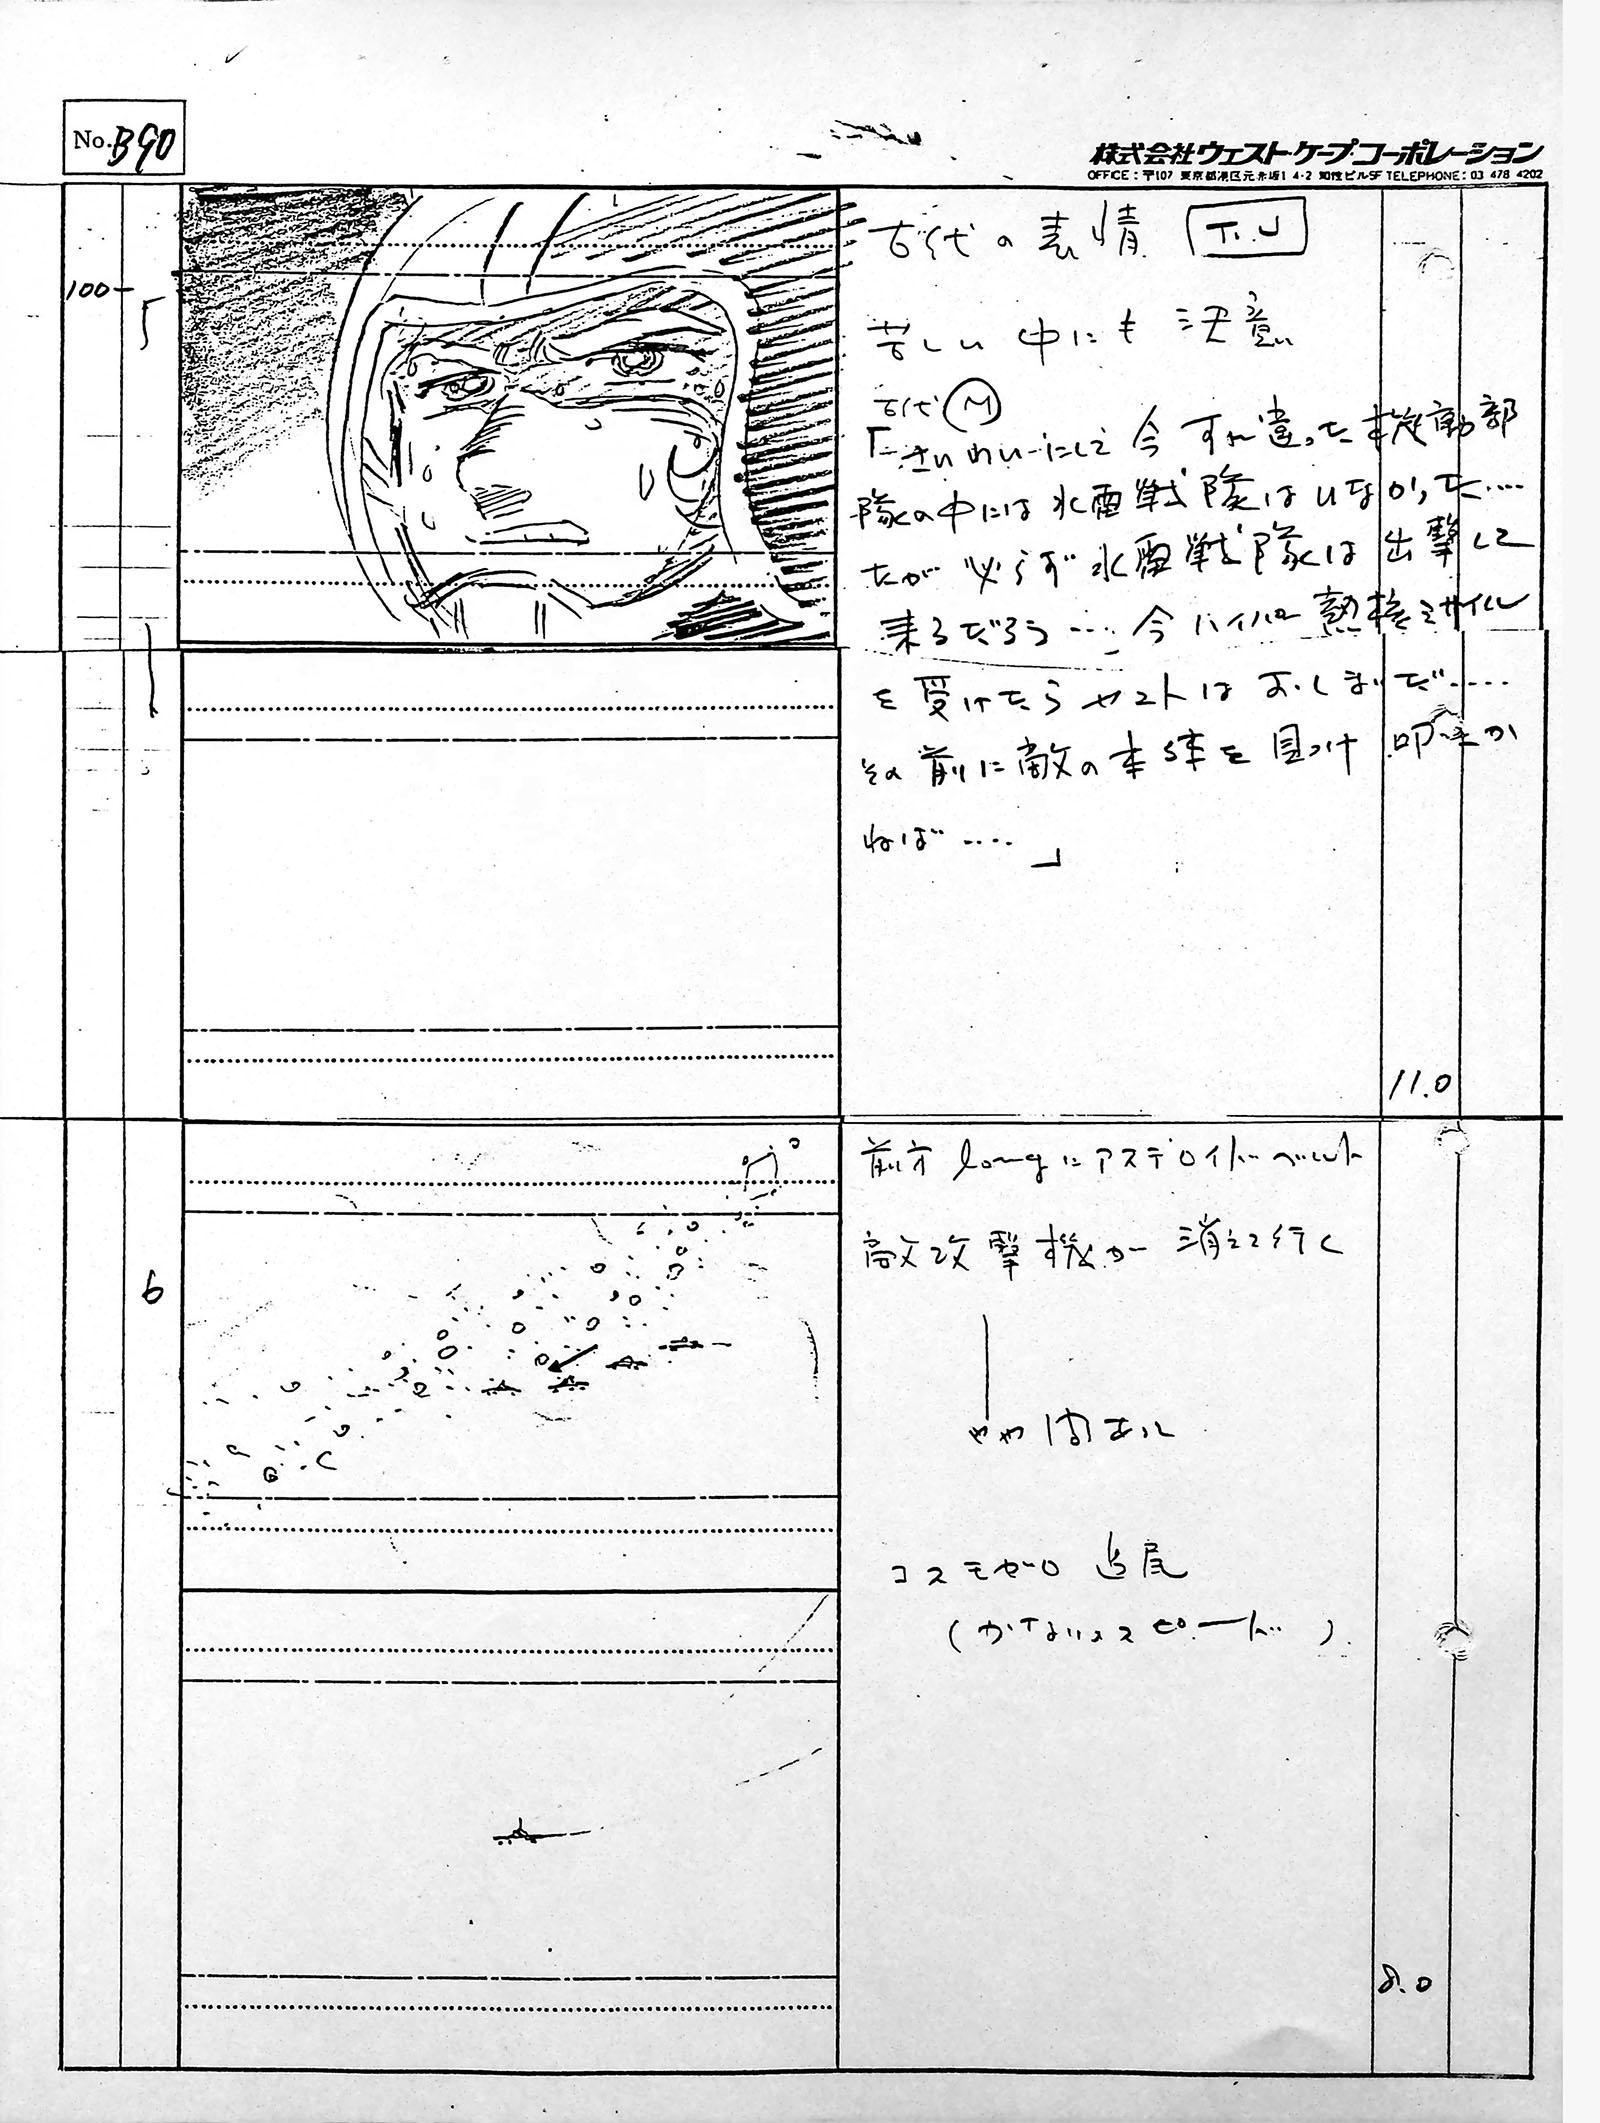 No. B90
株式会社ウェスト・ケープ・コーポレーション
OFFICE：〒107 東京都港区元赤坂1 4-2 ビル5F TELEPHONE：03 478 4202
100
5
古代の表情 T.U
苦しい中にも決意
古代 M
「さいわいにして今すれ違った機動部
隊の中には水雷戦隊はいなかった‥‥
だが必らず水雷戦隊は出撃して
来るだろう‥‥今ハイパー熱核ミサイル
を受けたらヤマトはおしまいだ‥‥
その前に敵の本体を見つけ叩かな
ねば‥‥」
11.0
6
前方longにアステロイドベルト
敵攻撃機が消えて行く
やや間あって
コスモゼロ追尾
(かなりスピード)
8.0